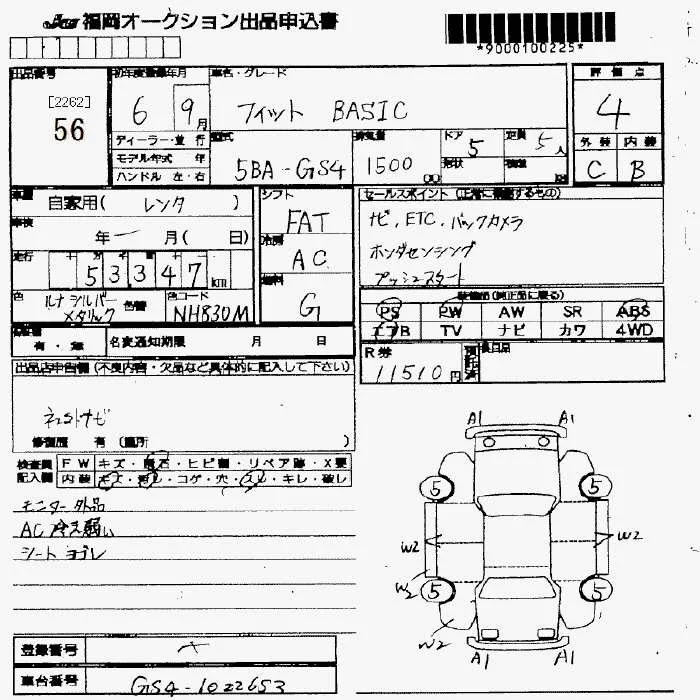 福岡オークション出品申込書
*9000100225*
出品番号
[2262]
56
初年度登録年月
6 9月
車名・グレード
フィット BASIC
評価点
4
外装 内装
C B
ディーラー・並行
モデル年式 年
ハンドル 左・右
型式
5BA-GS4
排気量
1500 cc
ドア 5
形状
定員 5人
車歴
自家用( レンタ )
車検
年 月( 日)
走行
53347 km
色
ルナシルバーメタリック
色替
色コード
NH830M
シフト
FAT
冷房
AC
燃料
G
セールスポイント(正常に機能するもの)
ナビ, ETC, バックカメラ
ホンダセンシング
プッシュスタート
装備品(純正品に限る)
PS PW AW SR ABS
エアB TV ナビ カワ 4WD
有・無
名変通知期限 月 日
R券
11510円
預託済
後日品
出品店申告欄(不良内容・欠品など具体的に記入して下さい)
修復歴 有(箇所 )
検査員記入欄
FW キズ・飛石・ヒビ割・リペア跡・X要
内装 キズ・汚レ・コゲ・穴・スレ・キレ・破レ
モニター外品
AC 冷え弱い
シートヨゴレ
A1 A1
5 5
W2 W2
W2
5 5
W2
A1 A1
登録番号
車台番号
GS4-1022653